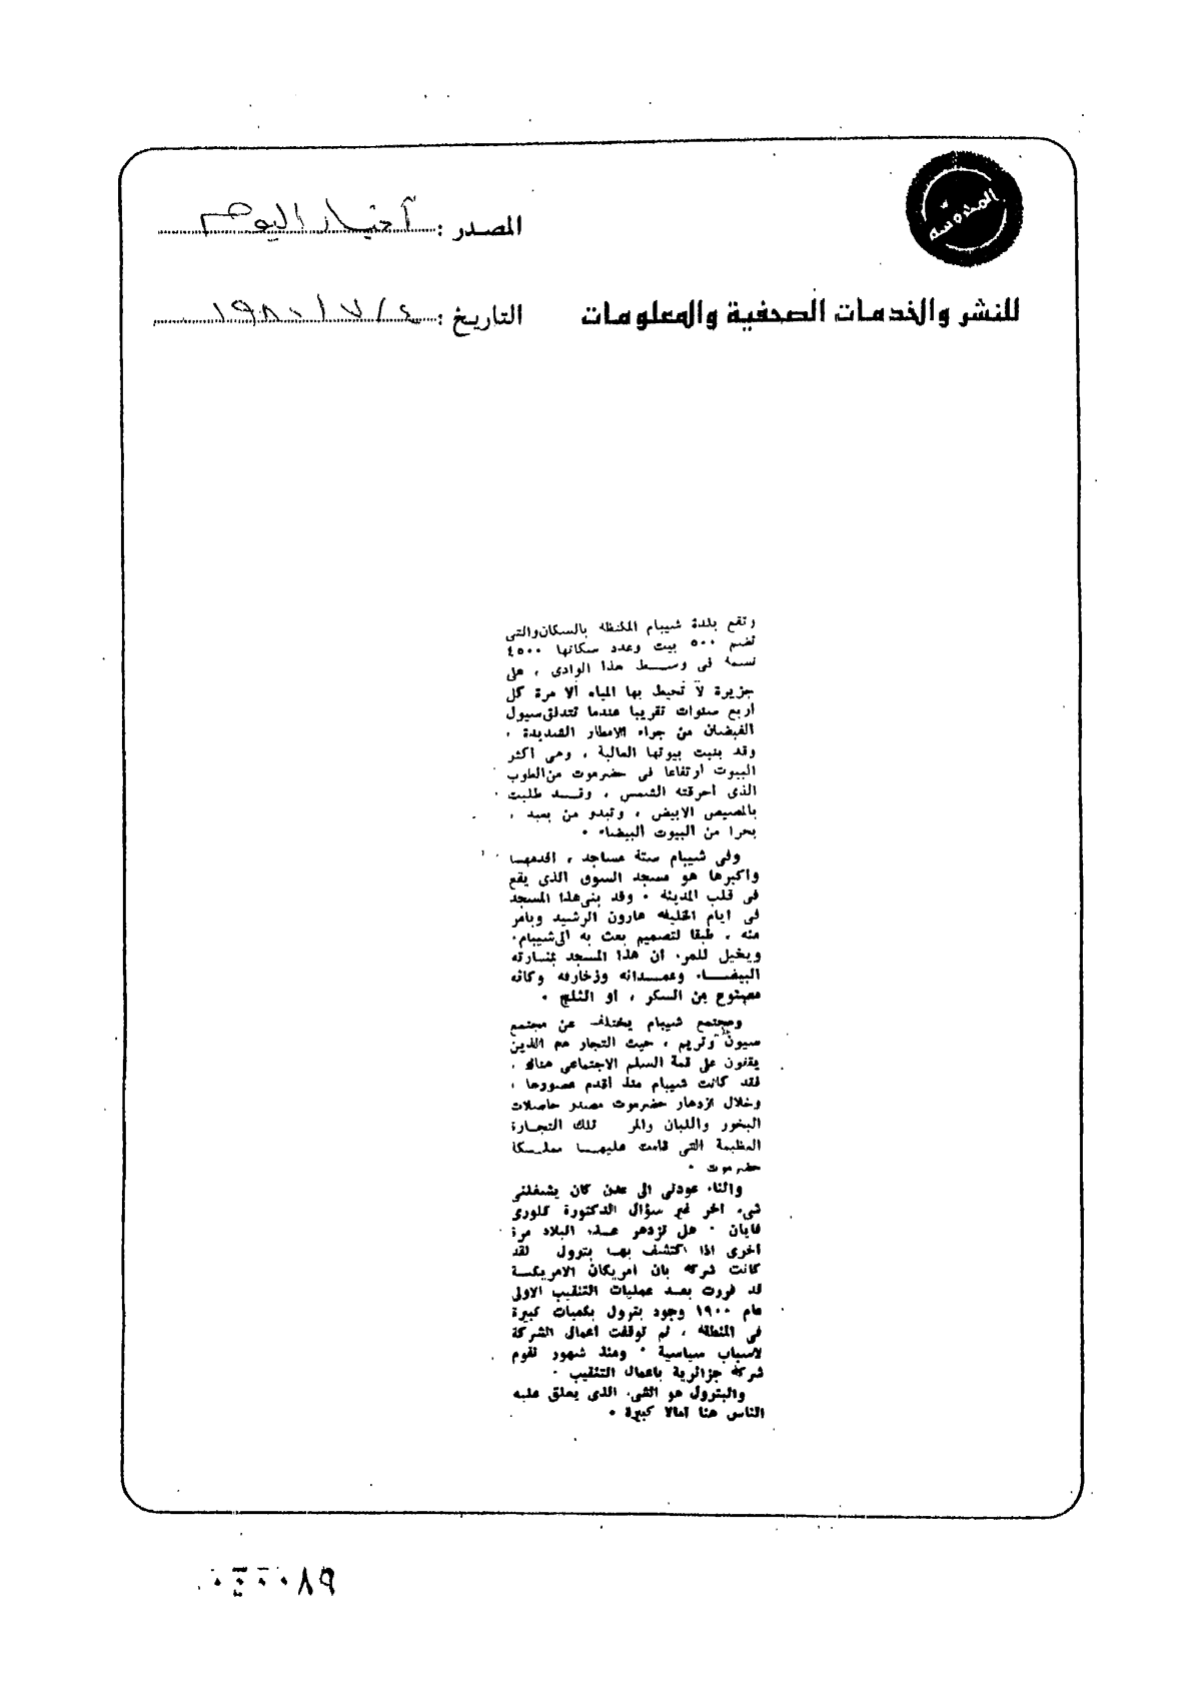 المدوسة
المصدر : أخبار اليوم
للنشر والخدمات الصحفية والمعلومات
التاريخ : ٤ / ٧ / ١٩٨٠
وتقع بلدة شيبام المكتظة بالسكان والتى
تضم ٥٠٠ بيت وعدد سكانها ٤٥٠٠
نسمة فى وسط هذا الوادى ، على
جزيرة لا تحيط بها المياه الا مرة كل
اربع سنوات تقريبا عندما تتدفق سيول
الفيضان من جراء الامطار الشديدة .
وقد بنيت بيوتها العالية ، وهى اكثر
البيوت ارتفاعا فى حضرموت من الطوب
الذى احرقته الشمس ، وقد طليت
بالمصيص الابيض ، وتبدو من بعيد ،
بحرا من البيوت البيضاء .
وفى شيبام ستة مساجد ، اقدمها
واكبرها هو مسجد السوق الذى يقع
فى قلب المدينة . وقد بنى هذا المسجد
فى ايام الخليفة هارون الرشيد وبامر
منه ، طبقا لتصميم بعث به الى شيبام.
ويخيل للمرء ان هذا المسجد بمنارته
البيضاء وعمدانه وزخارفه وكانه
مصنوع من السكر ، او الثلج .
ومجتمع شيبام يختلف عن مجتمع
سيون وتريم ، حيث التجار هم الذين
يقفون على قمة السلم الاجتماعى هناك .
لقد كانت شيبام منذ اقدم عصورها ،
وخلال ازدهار حضرموت مصدر حاصلات
البخور واللبان والمر تلك التجارة
العظيمة التى قامت عليها مملكة
حضرموت .
واثناء عودتى الى عدن كان يشغلنى
شىء اخر غير سؤال الدكتورة كلورى
فايان . هل تزدهر هذه البلاد مرة
اخرى اذا اكتشف بها بترول لقد
كانت شركة بان امريكان الامريكية
قد قررت بعد عمليات التنقيب الاولى
عام ١٩٠٠ وجود بترول بكميات كبيرة
فى المنطقة ، ثم توقفت اعمال الشركة
لاسباب سياسية . ومنذ شهور تقوم
شركة جزائرية باعمال التنقيب .
والبترول هو الشىء الذى يعلق عليه
الناس هنا امالا كبيرة .